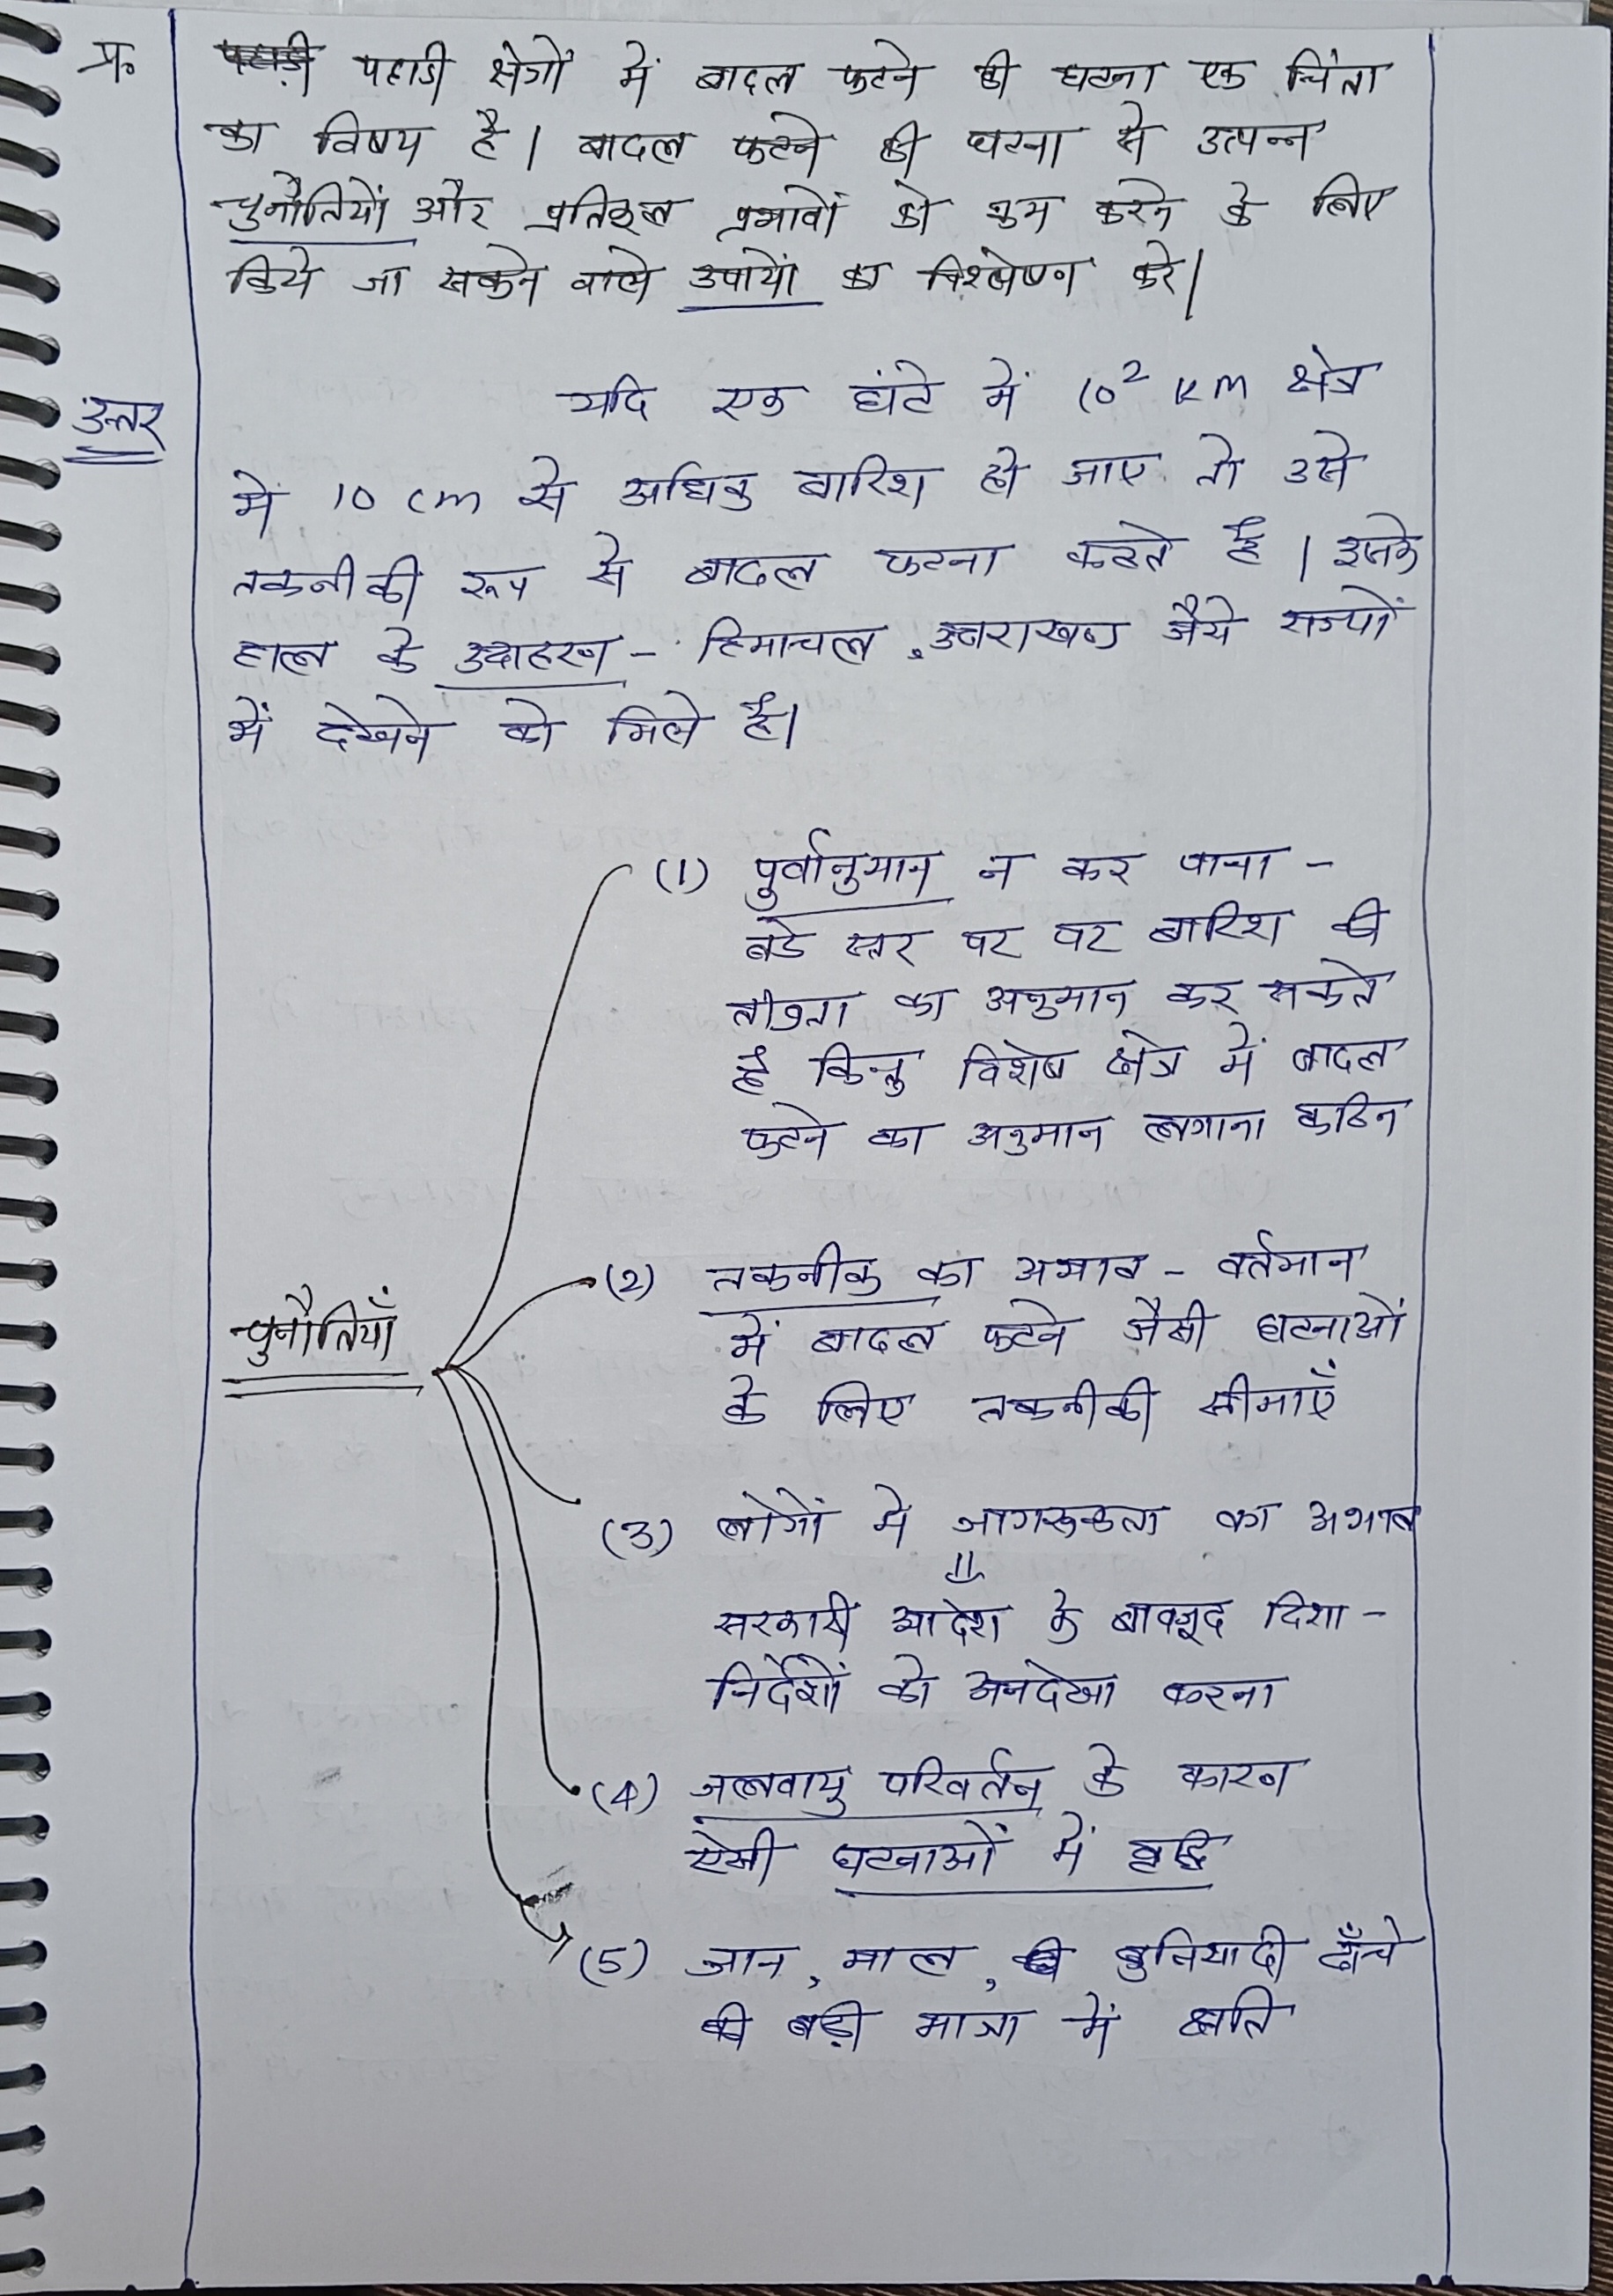 प्र० पहाडी क्षेत्रों में बादल फटने की घटना एक चिंता
का विषय है। बादल फटने की घटना से उत्पन्न
चुनौतियों और प्रतिकूल प्रभावों को कम करने के लिए
किये जा सकने वाले उपायों का विश्लेषण करे।
उत्तर यदि एक घंटे में 10² km क्षेत्र
में 10 cm से अधिक बारिश हो जाए तो उसे
तकनीकी रूप से बादल फटना कहते है। इसके
हाल के उदाहरण - हिमाचल, उत्तराखण्ड जैसे राज्यों
में देखने को मिले है।
(1) पुर्वानुमान न कर पाना -
बडे स्तर पर पर बारिश की
तीव्रता का अनुमान कर सकते
है किन्तु विशेष क्षेत्र में बादल
फटने का अनुमान लगाना कठिन
चुनौतियाँ
(2) तकनीक का अभाव - वर्तमान
में बादल फटने जैसी घटनाओं
के लिए तकनीकी सीमाएँ
(3) लोगों मे जागरूकता का अभाव
सरकारी आदेश के बावजूद दिशा -
निर्देशों को अनदेखा करना
(4) जलवायु परिवर्तन के कारण
ऐसी घटनाओं में वृद्धि
(5) जान, माल, बुनियादी ढाँचे
की बड़ी मात्रा में क्षति